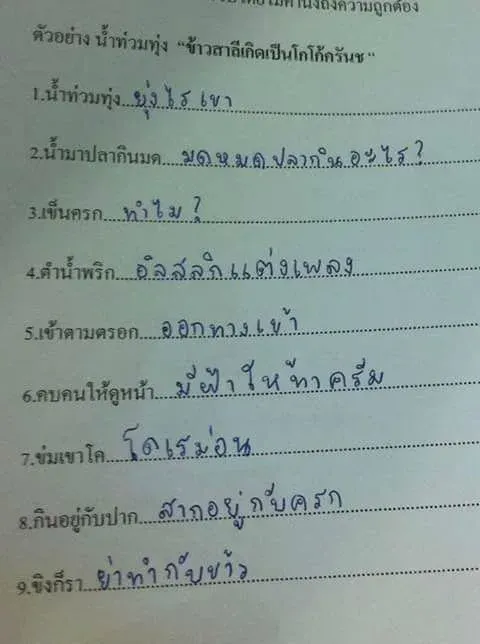 ตัวอย่าง น้ำท่วมทุ่ง "ข้าวสาลีเกิดเป็นโกโก้ครันช"
1.น้ำท่วมทุ่ง...ยุ่งไรเขา
2.น้ำมาปลากินมด...มดหมดปลากินอะไร?
3.เข็นครก...ทำไม?
4.ตำน้ำพริก...อิลสลิกแต่งเพลง
5.เข้าตามตรอก...ออกทางเข้า
6.คบคนให้ดูหน้า...มีฝ้าให้ทาครีม
7.ข่มเขาโค...โดเรม่อน
8.กินอยู่กับปาก...สากอยู่กับครก
9.ขิงก็รา...ย่าทำกับข้าว